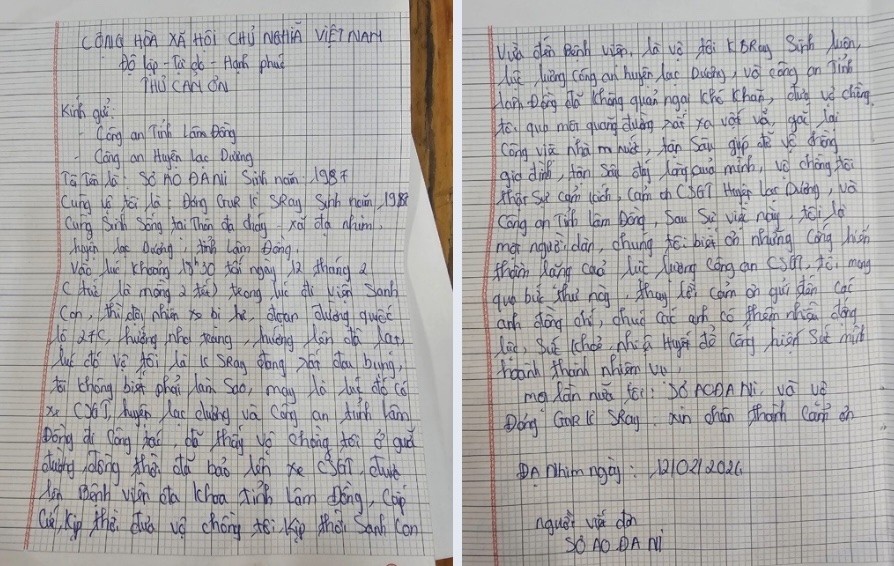 CỘNG HÒA XÃ HỘI CHỦ NGHĨA VIỆT NAM
Độ lập - Tự do - Hạnh phúc
THƯ CẢM ƠN
Kính gửi:
- Công an Tỉnh Lâm Đồng
- Công an Huyện Lạc Dương
Tôi Tên là: SƠ AO ĐA NI Sinh năm: 1987
Cùng vợ tôi là: Đông GưR K SRay Sinh năm, 1988
Cùng Sinh Sống tại Thôn đạ cháy - xã đạ nhim,
huyện lạc Dương, tỉnh Lâm Đồng.
Vào lúc khoảng 19h30 tối ngày 12 tháng 2
(tức là mồng 2 tết) trong lúc đi viện Sanh
Con, thì đột nhiên xe bị hư, đoạn đường quốc
lộ 27C, hướng nha trang, hướng lên đà lạt
lúc đó vợ tôi là K SRay đang rất đau bụng,
tôi không biết phải làm Sao, may là lúc đó có
xe CSGT, huyện lạc dương và Công an tỉnh lâm
Đồng đi Công tác, đã thấy vợ chồng tôi ở giữa
đường đồng thời đã bảo lên xe CSGT, được
lên Bệnh viện đa khoa tỉnh Lâm Đồng, Cấp
Cứu, Kịp thời đưa vợ chồng tôi Kịp thời Sanh Con
Vừa đến Bệnh viện, là vợ tôi K SRay Sinh luôn,
lực lượng công an huyện lạc Dương, và công an Tỉnh
lâm Đồng đã không quản ngại khó khăn, đưa vợ chồng
tôi qua một quãng đường rất xa vất vả, gác lại
Công việc nhà nước, tận Sau giúp đỡ vợ chồng
gia đình, tận Sâu đáy lòng của mình, vợ chồng tôi
thật Sự cảm kích, Cảm ơn CSGT Huyện Lạc Dương, và
Công an Tỉnh Lâm Đồng, Sau Sự việc này, tôi là
một người dân, chúng tôi biết ơn những Cống hiến
thầm lặng của lực lượng công an CSGT, tôi mong
qua bức thư này, thay lời cảm ơn gửi đến các
anh đồng chí, chúc các anh có thêm nhiều động
lực, Sức khỏe, nhiệt Huyết để Cống hiến Sức mình
hoành thành nhiệm vụ.
một lần nữa tôi: SƠ AO ĐA Ni. và vợ
Đông GưR K SRay. xin chân thành cảm ơn
ĐẠ Nhim ngày: 12/02/2024
người viết đơn
SƠ AO ĐA Ni